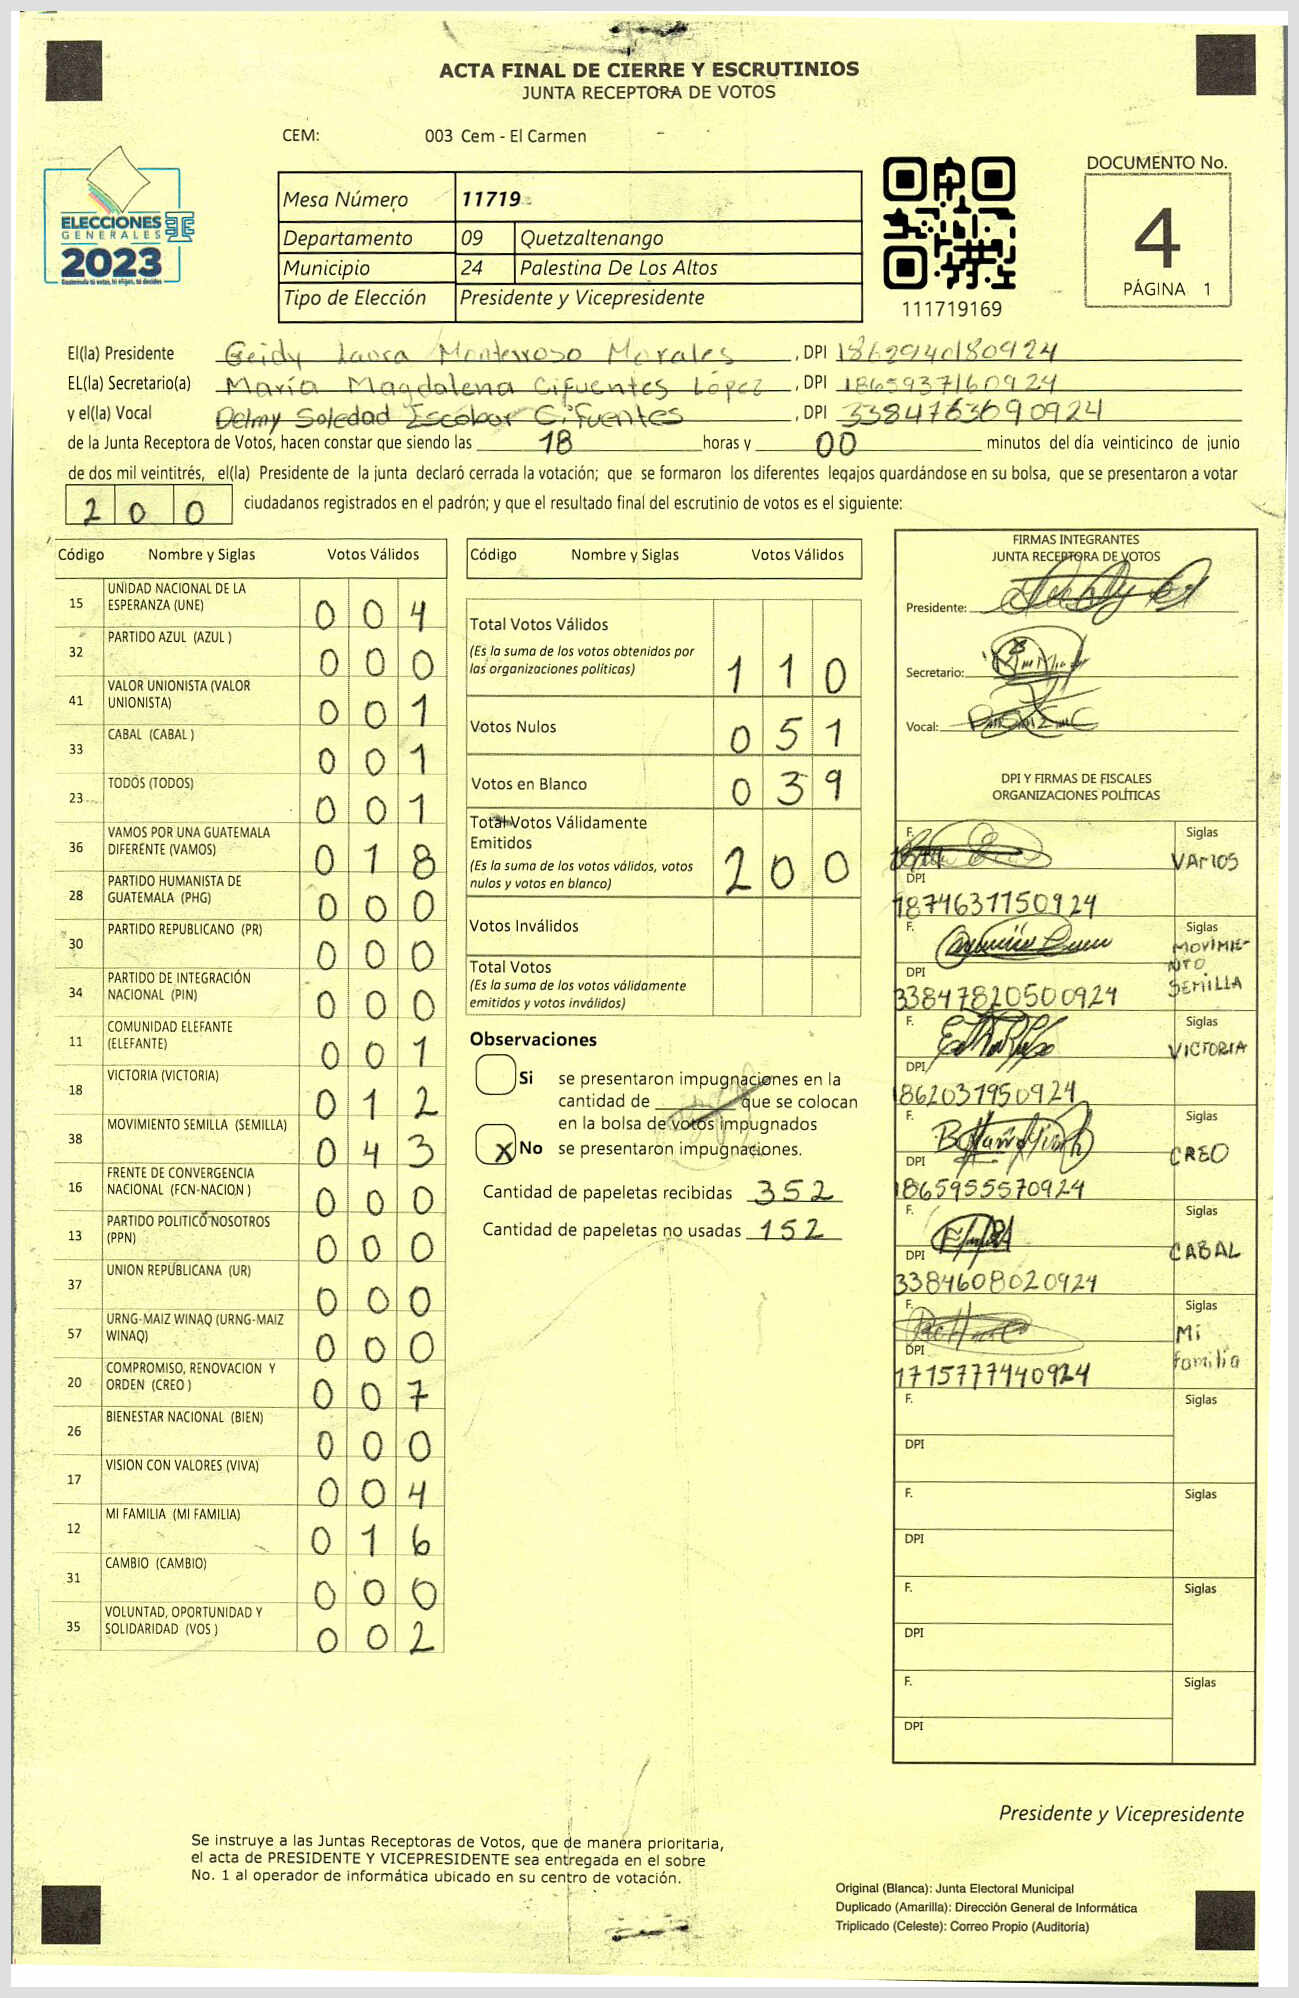 ACTA FINAL DE CIERRE Y ESCRUTINIOS
JUNTA RECEPTORA DE VOTOS
CEM: 003 Cem - El Carmen
ELECCIONES
GENERALES
2023
Guatemala tú votas, tú eliges, tú decides
Mesa Número 11719
Departamento 09 Quetzaltenango
Municipio 24 Palestina De Los Altos
Tipo de Elección Presidente y Vicepresidente
111719169
DOCUMENTO No.
4
PÁGINA 1
El(la) Presidente Geidy Laura Monterroso Morales, DPI 1862940180924
EL(la) Secretario(a) María Magdalena Cifuentes López, DPI 1865937160924
y el(la) Vocal Delmy Soledad Escobar Cifuentes, DPI 3384763690924
de la Junta Receptora de Votos, hacen constar que siendo las 18 horas y 00 minutos del día veinticinco de junio
de dos mil veintitrés, el(la) Presidente de la junta declaró cerrada la votación; que se formaron los diferentes legajos quardándose en su bolsa, que se presentaron a votar
200 ciudadanos registrados en el padrón; y que el resultado final del escrutinio de votos es el siguiente:
Código Nombre y Siglas Votos Válidos
15 UNIDAD NACIONAL DE LA ESPERANZA (UNE) 004
32 PARTIDO AZUL (AZUL ) 000
41 VALOR UNIONISTA (VALOR UNIONISTA) 001
33 CABAL (CABAL ) 001
23 TODOS (TODOS) 001
36 VAMOS POR UNA GUATEMALA DIFERENTE (VAMOS) 018
28 PARTIDO HUMANISTA DE GUATEMALA (PHG) 000
30 PARTIDO REPUBLICANO (PR) 000
34 PARTIDO DE INTEGRACIÓN NACIONAL (PIN) 000
11 COMUNIDAD ELEFANTE (ELEFANTE) 001
18 VICTORIA (VICTORIA) 012
38 MOVIMIENTO SEMILLA (SEMILLA) 043
16 FRENTE DE CONVERGENCIA NACIONAL (FCN-NACION ) 000
13 PARTIDO POLITICO NOSOTROS (PPN) 000
37 UNION REPUBLICANA (UR) 000
57 URNG-MAIZ WINAQ (URNG-MAIZ WINAQ) 000
20 COMPROMISO, RENOVACION Y ORDEN (CREO ) 007
26 BIENESTAR NACIONAL (BIEN) 000
17 VISION CON VALORES (VIVA) 004
12 MI FAMILIA (MI FAMILIA) 016
31 CAMBIO (CAMBIO) 000
35 VOLUNTAD, OPORTUNIDAD Y SOLIDARIDAD (VOS ) 002
Código Nombre y Siglas Votos Válidos
Total Votos Válidos
(Es la suma de los votos obtenidos por las organizaciones politicas) 110
Votos Nulos 051
Votos en Blanco 039
Total Votos Válidamente Emitidos
(Es la suma de los votos válidos, votos nulos y votos en blanco) 200
Votos Inválidos
Total Votos
(Es la suma de los votos válidamente emitidos y votos inválidos)
Observaciones
Si se presentaron impugnaciones en la
cantidad de que se colocan
en la bolsa de votos impugnados
X No se presentaron impugnaciones.
Cantidad de papeletas recibidas 352
Cantidad de papeletas no usadas 152
FIRMAS INTEGRANTES
JUNTA RECEPTORA DE VOTOS
Presidente:
Secretario:
Vocal:
DPI Y FIRMAS DE FISCALES
ORGANIZACIONES POLÍTICAS
F. Siglas VARIOS
DPI 1874637750924
F. Siglas MOVIMIENTO SEMILLA
DPI 33847820500924
F. Siglas VICTORIA
DPI 1862037950924
F. Siglas CREO
DPI 1865955570924
F. Siglas CABAL
DPI 3384608020924
F. Siglas Mi familia
DPI 1715777440924
F. Siglas
DPI
F. Siglas
DPI
F. Siglas
DPI
F. Siglas
DPI
Presidente y Vicepresidente
Se instruye a las Juntas Receptoras de Votos, que de manera prioritaria,
el acta de PRESIDENTE Y VICEPRESIDENTE sea entregada en el sobre
No. 1 al operador de informática ubicado en su centro de votación.
Original (Blanca): Junta Electoral Municipal
Duplicado (Amarilla): Dirección General de Informática
Triplicado (Celeste): Correo Propio (Auditoría)